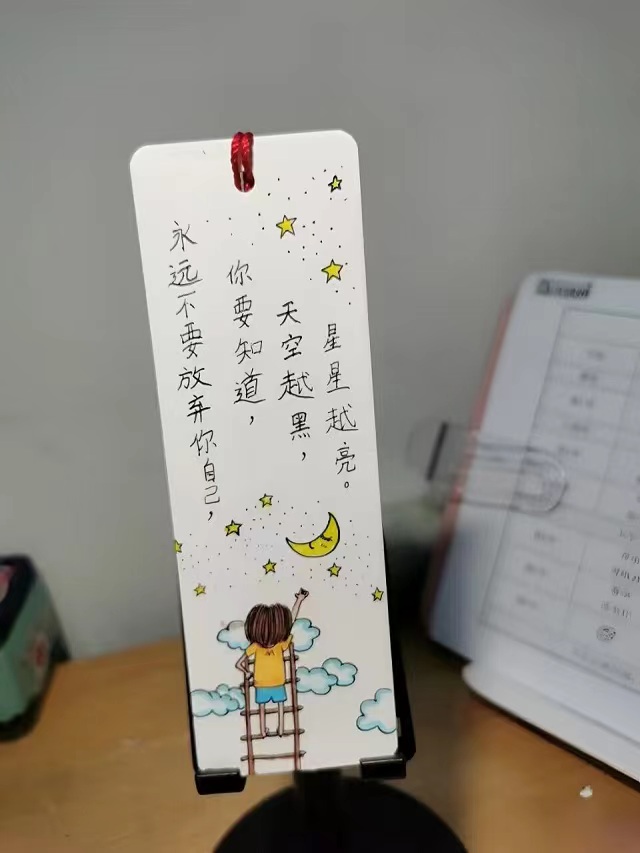 永远不要放弃你自己，
你要知道，
天空越黑，
星星越亮。